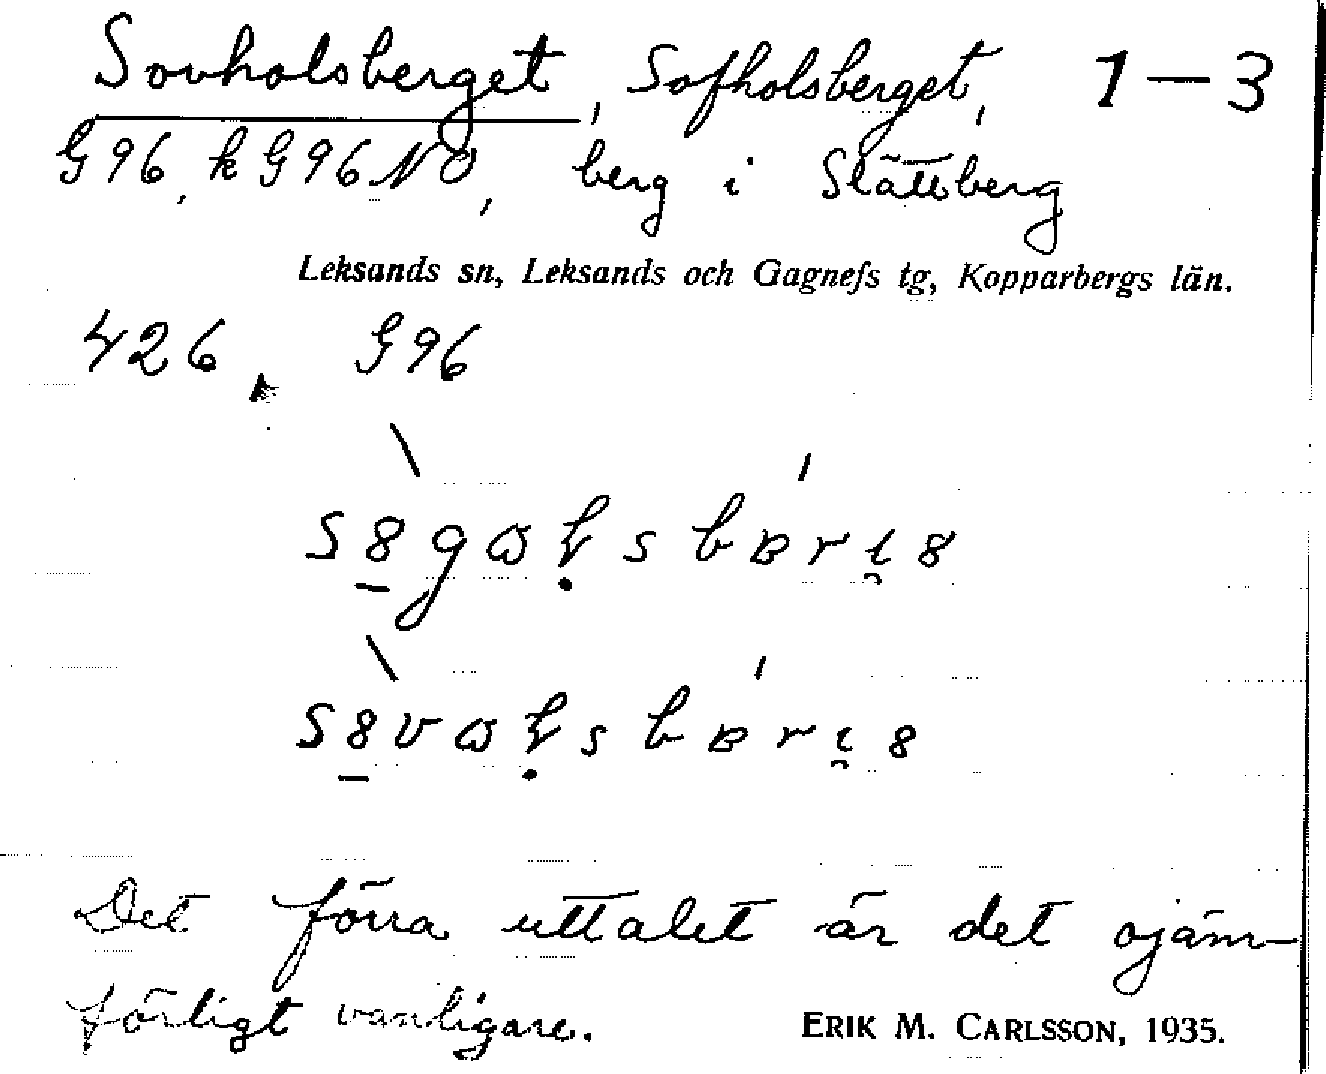 Sovholsberget, Sofholsberget, 1–3
G96, k G96NO, berg i Slättberg
Leksands sn, Leksands och Gagnefs tg, Kopparbergs län.
426. G96
Det förra uttalet är det ojäm-
förligt vanligare.
ERIK M. CARLSSON, 1935.